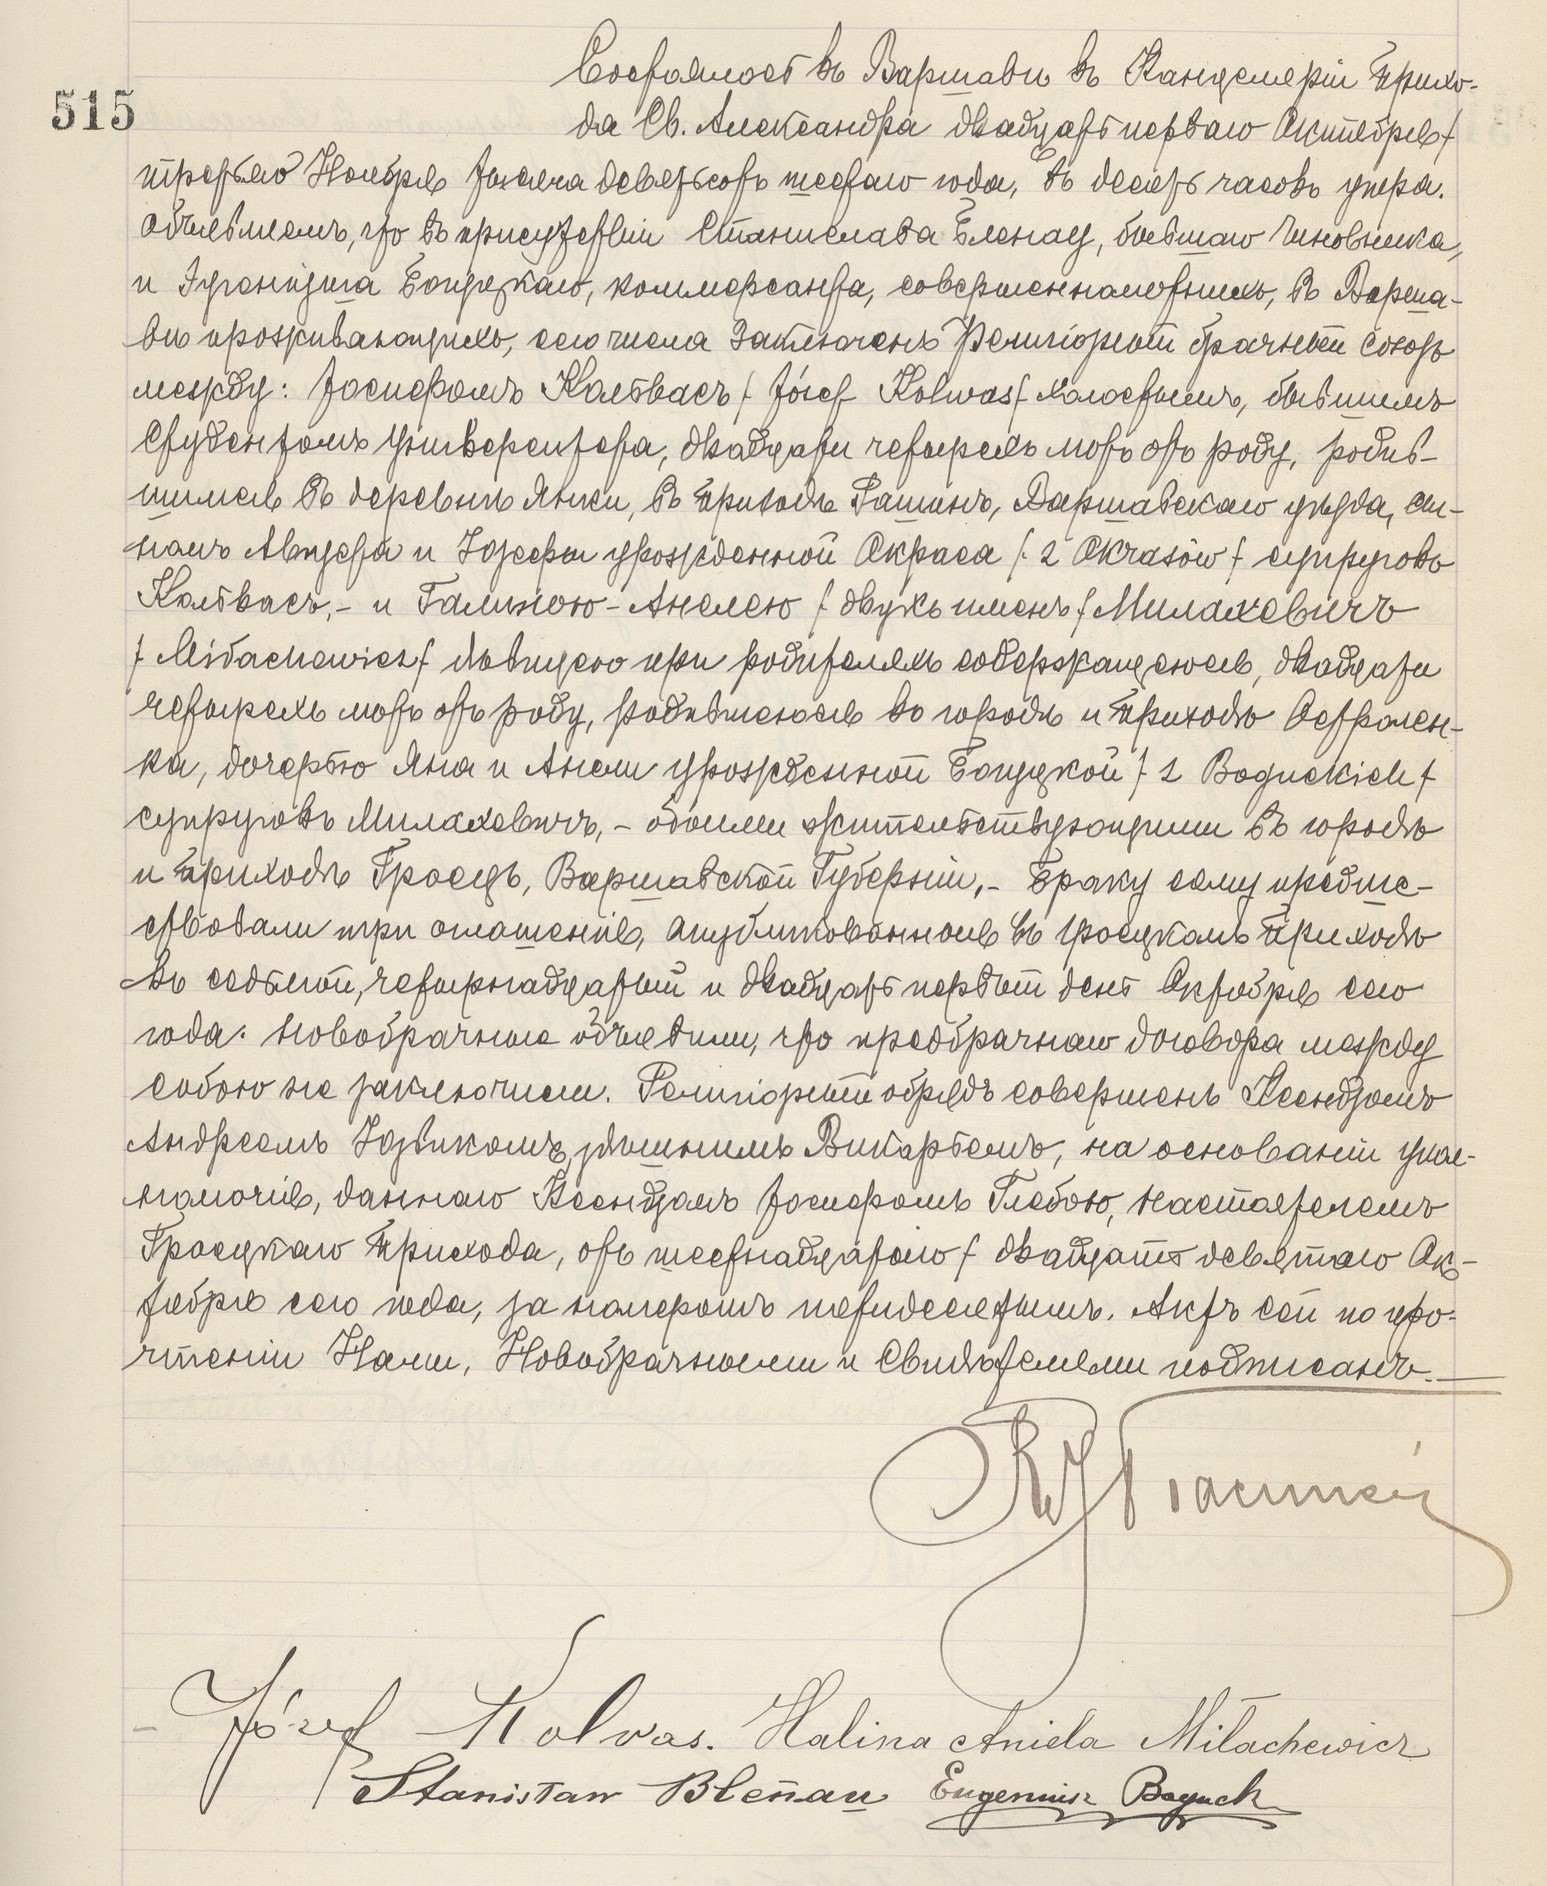 515
Состоялось въ Варшавѣ въ Канцеляріи Прихо-
да Св. Александра двадцать перваго Октября/
третьяго Ноября тысяча девятьсотъ шестаго года, въ десять часовъ утра.
Объявляемъ, что въ присутствіи Станислава Бленау, бывшаго чиновника,
и Эугеніуша Богуцкаго, коммерсанта, совершеннолѣтнихъ, въ Варша-
вѣ проживающихъ, сего числа заключенъ Религіозный брачный союзъ
между: Іосифомъ Кольвасъ / Józef Kolwas / холостымъ, бывшимъ
Студентомъ Университета, двадцати четырехъ лѣтъ отъ роду, родив-
шимся въ деревнѣ Янки, въ приходѣ Рашинъ, Варшавскаго уѣзда, сы-
номъ Августа и Юзефы урожденной Окраса / z Okrasów / супруговъ
Кольвасъ, - и Галиною-Анелею / двухъ именъ / Милахевичъ
/ Miłachewicz / дѣвицею при родителяхъ содержащеюся, двадцати
четырехъ лѣтъ отъ роду, родившеюся въ городѣ и приходѣ Остролен-
ка, дочерью Яна и Анели урожденной Богуцкой / z Boguckich /
супруговъ Милахевичъ, - обоими жительствующими въ городѣ
и приходѣ Гроецъ, Варшавской Губерніи, - Браку сему предше-
ствовали три оглашенія, опубликованныя въ Гроецкомъ приходѣ
въ седьмой, четырнадцатый и двадцать первый день Октября сего
года. Новобрачные объявили, что предбрачнаго договора между
собою не заключили. Религіозный обрядъ совершенъ Ксендзомъ
Андреемъ Юзвикомъ, здѣшнимъ Викарьемъ, на основаніи упол-
номочія, даннаго Ксендзомъ Іосифомъ Глебою, настоятелемъ
Гроецкаго прихода, отъ шестнадцатаго / двадцать девятаго Ок-
тября сего года, за номеромъ шестидесятымъ. Актъ сей по про-
чтеніи Нами, Новобрачными и Свидѣтелями подписанъ.
Józef Kolwas. Halina Aniela Miłachewicz
Stanisław Blenau Eugeniusz Boguck